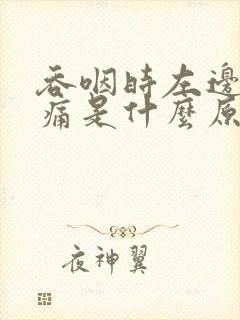 吞咽時左邊
痛是什麼原
夜神翼